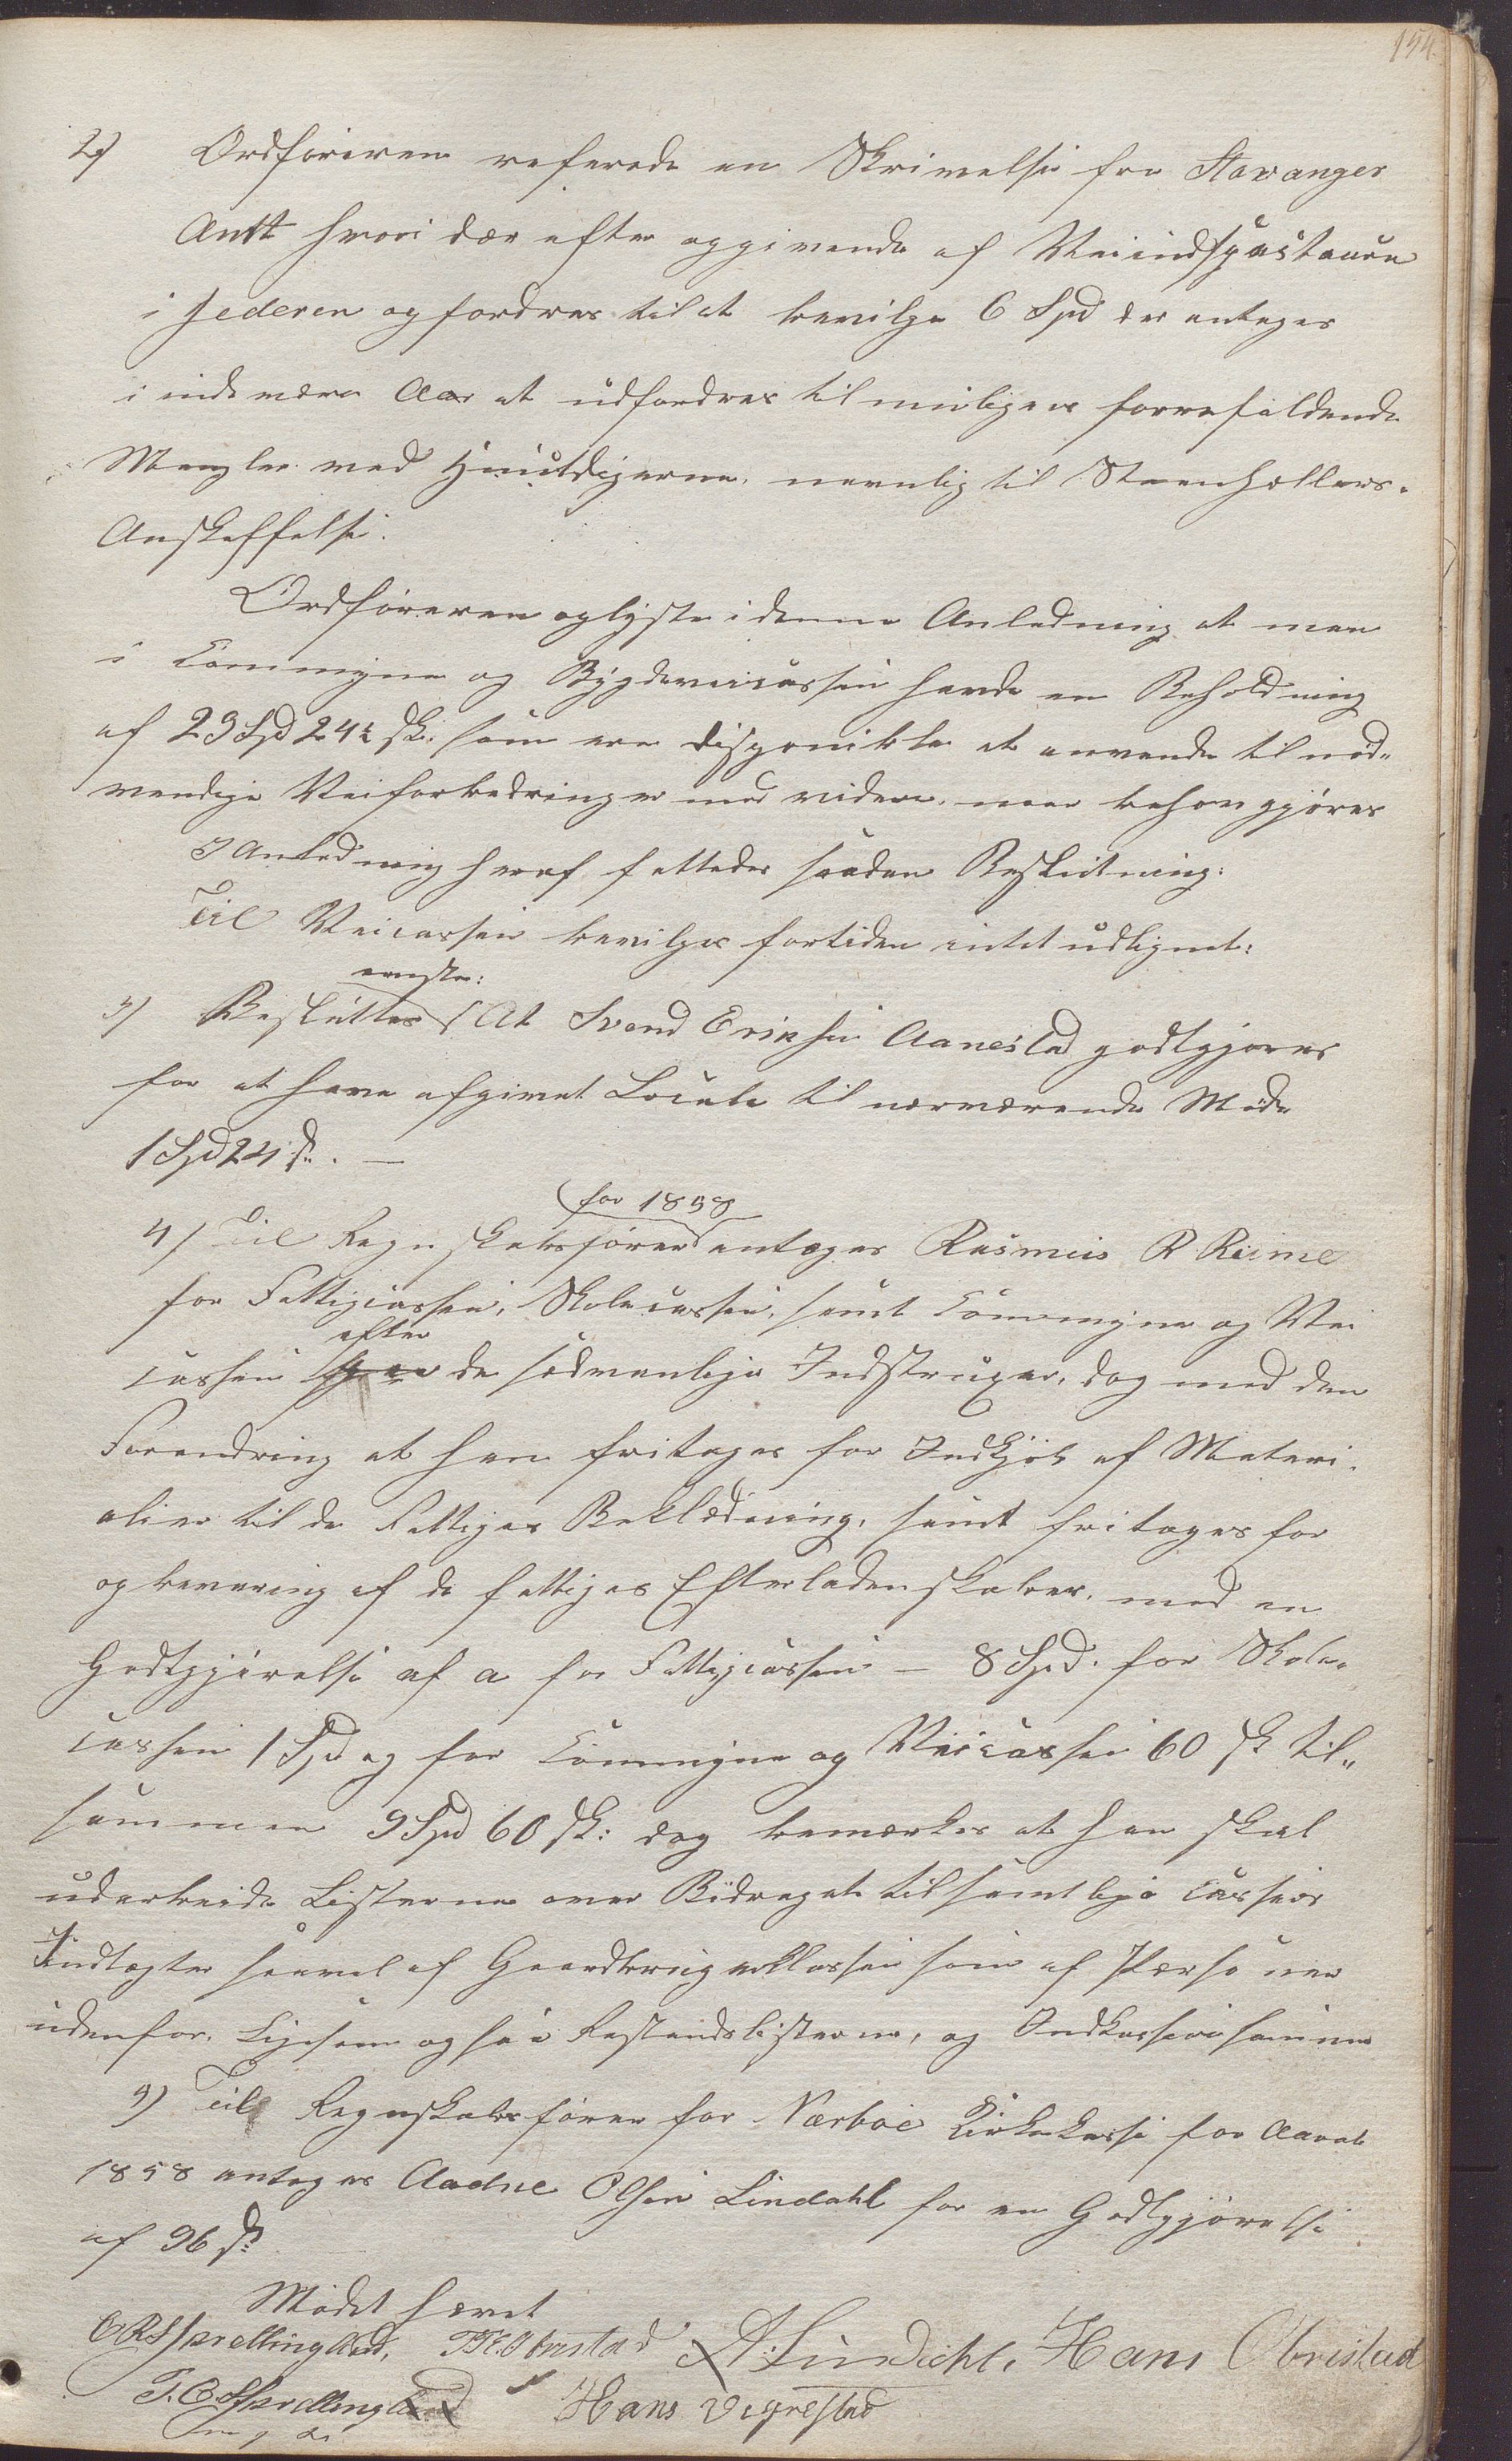 154.
2) Ordføreren referede en Skrivelse fra Stavanger
Amt hvori der efter opgivende af Veiindspecteuren
i Jederen opfordres til at bevilge 6 Spd der antages
i indeværen Aar at udfordres til muligens forrefaldende
Mangler ved
nemlig til Steenhellers-
Anskaffelse.
Ordføreren oplyste i denne Anledning at man
i Commyne og Bygdeveicassen havde en Beholdning
af 23 Spd 24½ sk. som ere disponible at anvende til nød-
vendige Veiforbedringer med videre, naar behov gjøres
I Anledning heraf fattedes saadan Beslutning:
Til Veicassen bevilges fortiden intet udlignet:
eenst:
3) Besluttes At Svend Eriksen Aanestad godtgjøres
for at have afgivet Locale til nærværende Møde
1 Spd 24 s. —
for 1858
4) Til Regnskabsfører antages Rasmus R Riime
for Fattigcassen, Skolecassen, samt Commyne og Vei
efter
cassen de sedvanlige Indstruxer, dog med den
Forandring at han fritages for Indkjøb af Materi-
alier til de Fattiges Beklædning, samt fritages for
opbevaring af de fattiges Efterladenskaber, med en
Godtgjørelse af a for Fattigcassen — 8 Spd. for Skole-
cassen 1 Spd og for Commyne og Veicassen 60 sk til-
sammen 9 Spd 60 sk: dog bemærkes at han skal
udarbeide Listerne over Bidraget til samtlige Cassers
Indtægter saavel af Gaardbrugerklassen som af Personer
udenfor. Ligesom ogsaa Restandslisterne, og Indkassere samme
5) Til Regnskabsfører for Nærbøe Kirkekasse for Aaret
1858 antages Aadne Olsen Lindahl for en Godtgjørelse
af 96 s
Mødet hævet
O R Sprellingland, T. E. Obrestad A. Lindahl, Hans Obrestad
T. O. Sprellingland Hans Vigrestad